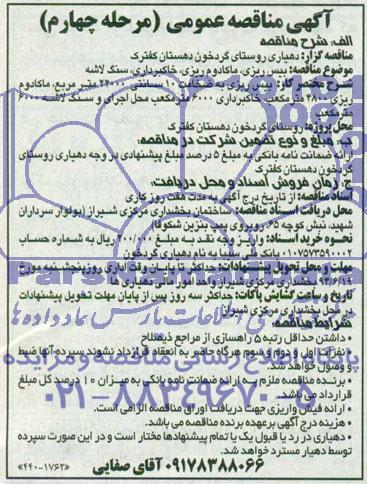 آگهی مناقصه عمومی (مرحله چهارم)
الف: شرح مناقصه
مناقصه گزار: دهیاری روستای گردخون دهستان کفترک
موضوع مناقصه: بیس ریزی، ماکادوم ریزی، خاکبرداری، سنگ لاشه
شرح مختصر کار: بیس ریزی به ضخامت ۱۰ سانتی ۲۲۰۰۰ متر مربع، ماکادوم
ریزی ۲۸۰۰ متر مکعب، خاکبرداری ۶۰۰۰ مترمکعب محل اجرای و سنگ لاشه ۶۰۰۰
متر مکعب
محل پروژه: روستای گردخون دهستان کفترک
ب: مبلغ و نوع تضمین شرکت در مناقصه:
ارائه ضمانت نامه بانکی به مبلغ ۵ درصد مبلغ پیشنهادی در وجه دهیاری روستای
گردخون دهستان کفترک
ج: زمان فروش اسناد و محل دریافت:
اسناد مناقصه: از تاریخ درج آگهی به مدت هفت روز کاری
محل دریافت اسناد مناقصه: ساختمان بخشداری مرکزی شیراز (بولوار سرداران
شهید، نبش کوچه ۲۵، روبروی پمپ بنزین شکوفا)
نحوه خرید اسناد: واریز وجه نقد به مبلغ ۲۰۰/۰۰۰ ریال به شماره حساب
بانک ملی سیبا به نام دهیاری گردخون
مهلت و محل تحویل پیشنهادات: حداکثر تا پایان وقت اداری روز پنجشنبه مورخ
بخشداری مرکزی شیراز واحد امور مالی دهیاری ها
تاریخ و ساعت گشایش پاکات: حداکثر سه روز پس از پایان مهلت تحویل پیشنهادات
در محل بخشداری مرکزی شیراز
شرایط مناقصه:
• داشتن حداقل رتبه ۵ راهسازی از مراجع ذیصلاح
• نفرات اول و دوم و سوم هرگاه حاضر به انعقاد قرارداد نشوند سپرده آنها ضبط
و وصول خواهد شد.
• برنده مناقصه ملزم به ارائه ضمانت نامه بانکی به میزان ۱۰ درصد کل مبلغ
قرارداد می باشد.
• ارائه فیش واریزی جهت دریافت اوراق مناقصه الزامی است.
• هزینه درج آگهی برعهده برنده مناقصه می باشد.
• دهیاری در رد یا قبول یک یا تمام پیشنهادها مختار است و در این صورت سپرده
توسط دهیار مسترد خواهد شد.
۰۹۱۷۸۳۸۸۰۶۶ آقای صفایی
«۴۴۰-۱۷۶۲»
پایگاه اطلاع رسانی مناقصه و مزایده
۰۲۱-۸۸۳۴۹۶۷۰-۵